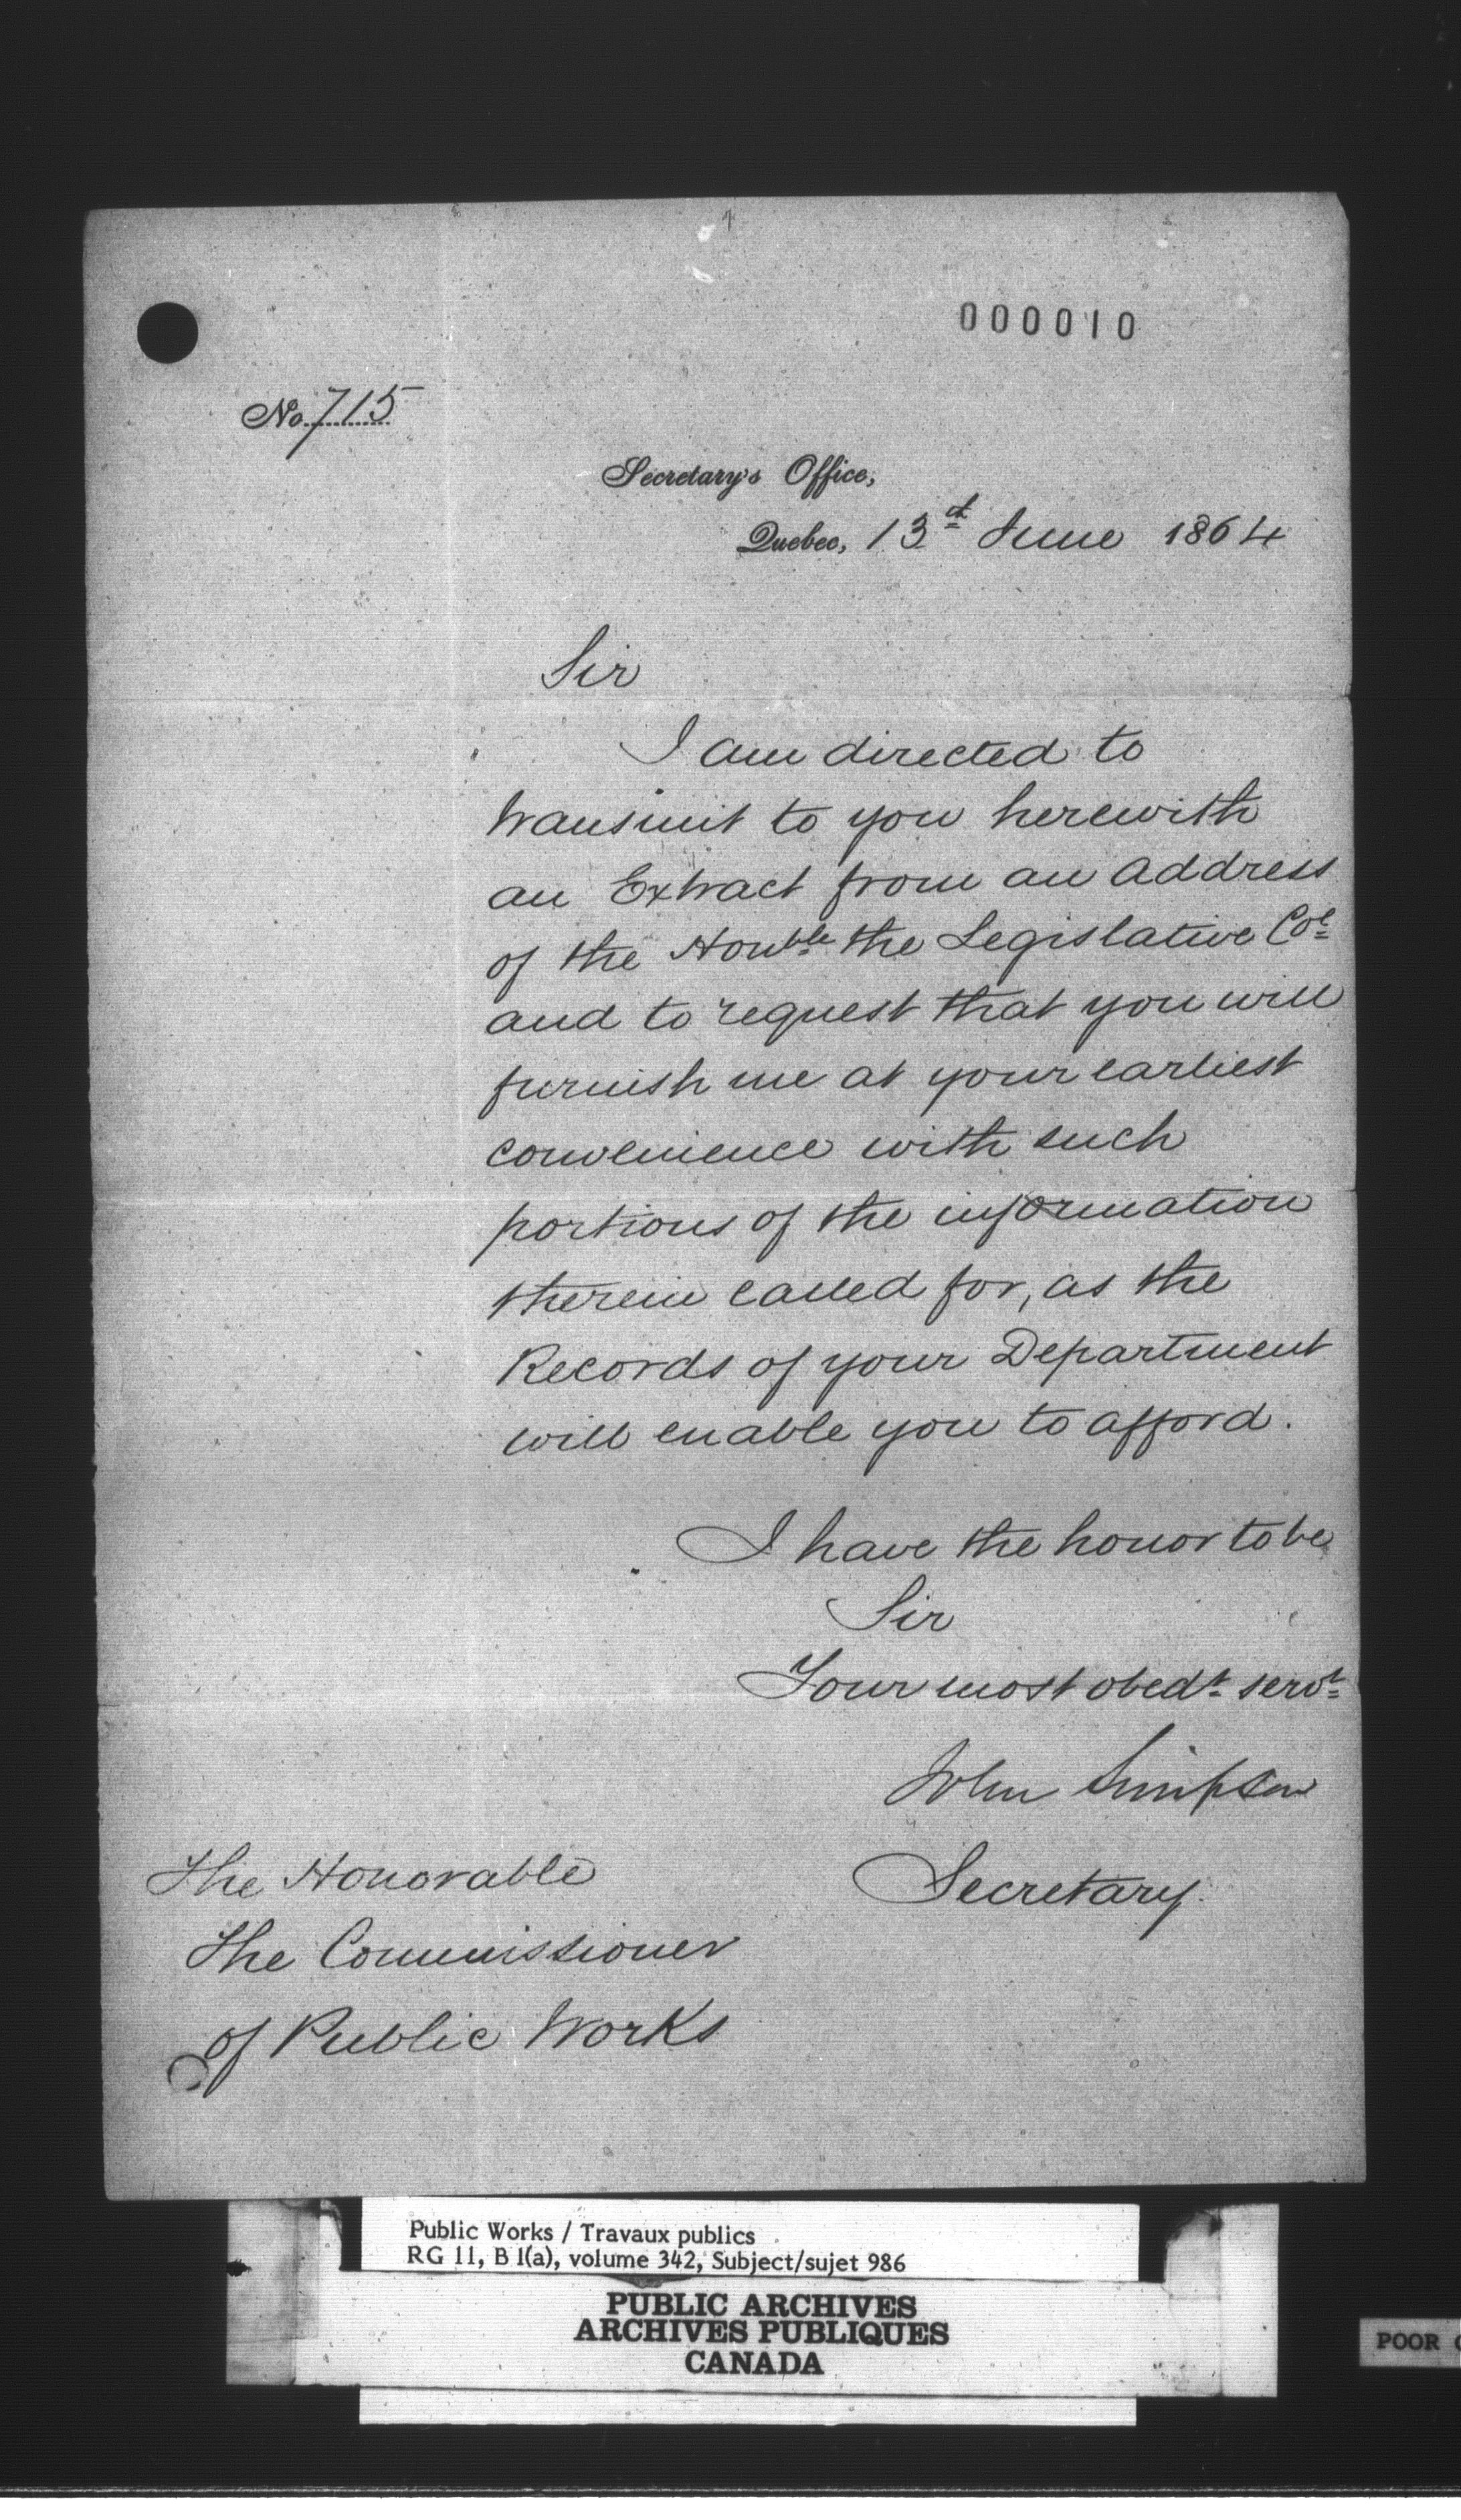 000010
No. 715
Secretary's Office,
Quebec, 13th June 1864
Sir
I am directed to
transmit to you herewith
an Extract from an Address
of the Honble the Legislative Col
and to request that you will
furnish me at your earliest
convenience with such
portions of the information
therein called for, as the
Records of your Department
will enable you to afford.
I have the honor to be
Sir
Your most obedt servt
John Simpson
Secretary.
The Honorable
The Commissioner
of Public Works
Public Works / Travaux publics
RG 11, B 1(a), volume 342, Subject/sujet 986
PUBLIC ARCHIVES
ARCHIVES PUBLIQUES
CANADA
POOR